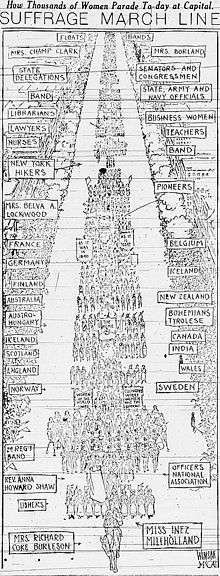 How Thousands of Women Parade To-day at Capital.
SUFFRAGE MARCH LINE
FLOATS
BANDS
MRS. CHAMP CLARK
MRS. BORLAND
STATE
DELEGATIONS
SENATORS AND
CONGRESSMEN
BAND
STATE, ARMY AND
NAVY OFFICIALS
LIBRARIANS
BUSINESS WOMEN
LAWYERS
TEACHERS
NURSES
BAND
NEW YORK
HIKERS
PIONEERS
MRS. BELVA A.
LOCKWOOD
FRANCE
BELGIUM
GERMANY
ICELAND
FINLAND
AUSTRALIA
NEW ZEALAND
AUSTRO-
HUNGARY
BOHEMIANS
TYROLESE
IRELAND
CANADA
SCOTLAND
INDIA
ENGLAND
WALES
NORWAY
SWEDEN
BAND
OFFICERS
NATIONAL
ASSOCIATION
REV. ANNA
HOWARD SHAW
USHERS
MISS INEZ
MILLHOLLAND
MRS. RICHARD
COKE BURLESON
WINSOR
McCAY